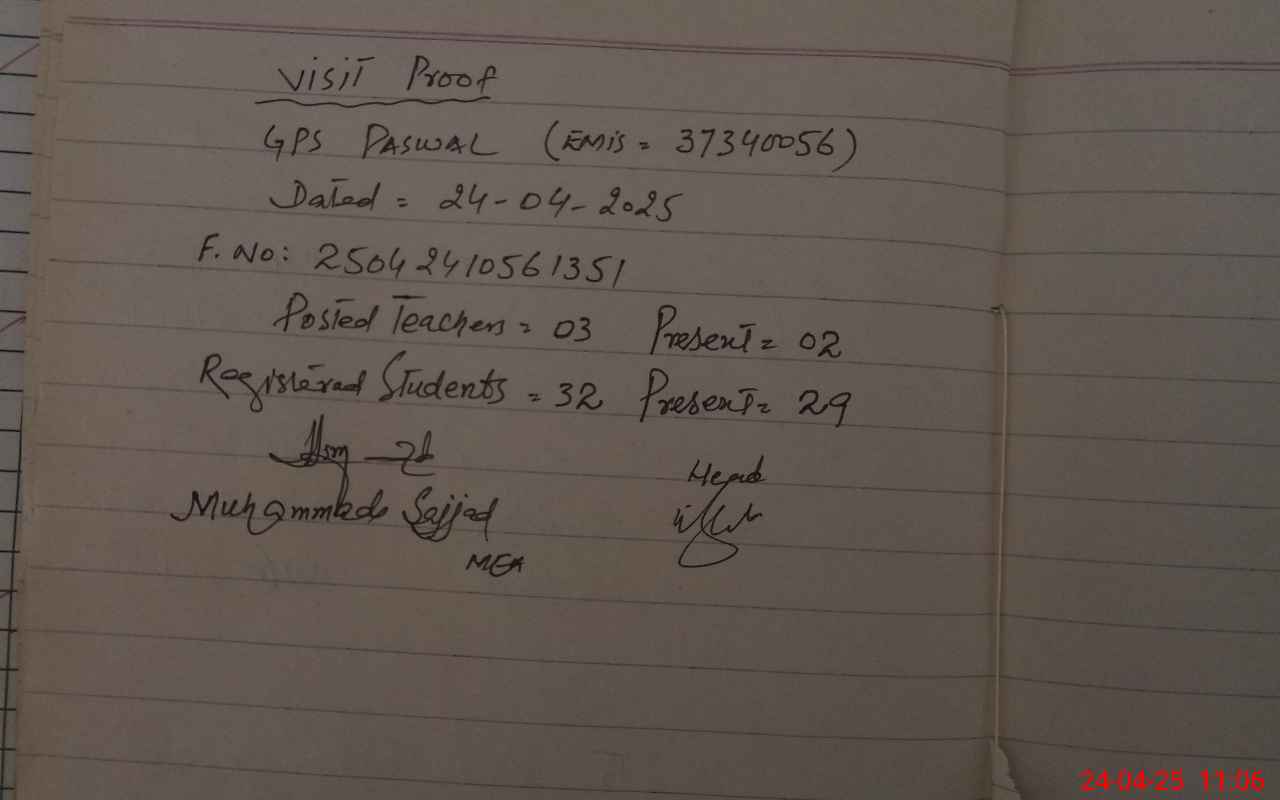 Visit Proof
GPS PASWAL (EMIS = 37340056)
Dated = 24-04-2025
F. No: 25042410561351
Posted Teachers = 03 Present = 02
Registered Students = 32 Present = 29
Head
Muhammad Sajjad
MEA
24-04-25 11:06